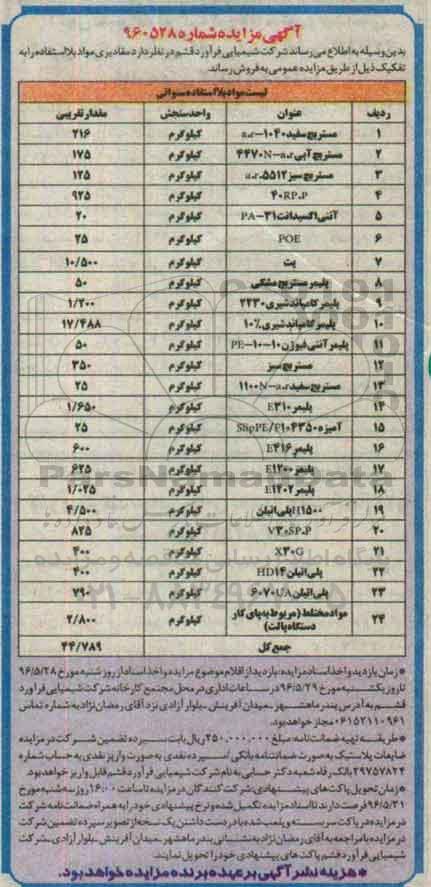 آگهی مزایده شماره ۹۶۰۵۲۸
بدین وسیله به اطلاع می رساند شرکت شیمیایی فرآورد قشم در نظر دارد مقادیری مواد بلااستفاده را به
تفکیک ذیل از طریق مزایده عمومی به فروش رساند.
لیست مواد بلااستفاده سنواتی
ردیف عنوان واحد سنجش مقدار تقریبی
۱ مستربچ سفید ۱۰۴۰-a.r کیلوگرم ۲۱۶
۲ مستربچ آبی ۴۴۷۰N-a.r کیلوگرم ۱۷۵
۳ مستربچ سبز ۵۵۱۲.a.r کیلوگرم ۱۲۵
۴ ۴۰RP.P کیلوگرم ۹۲۵
۵ آنتی اکسیدانت PA-۳۱ کیلوگرم ۲۰
۶ POE کیلوگرم ۲۵
۷ پت کیلوگرم ۱۰/۵۰۰
۸ پلیمر مستربچ مشکی کیلوگرم ۵۰
۹ پلیمر کامپاند شیری ۲۲۳۰ کیلوگرم ۱/۲۰۰
۱۰ پلیمر کامپاند شیری ۱۰٪ کیلوگرم ۱۷/۴۸۸
۱۱ پلیمر آنتی فیوژن ۱۰-PE-۱۰ کیلوگرم ۵۰
۱۲ مستربچ سبز کیلوگرم ۳۵۰
۱۳ مستربچ سفید ۱۱۰۰N-a.r کیلوگرم ۲۵
۱۴ پلیمر E۳۱۰ کیلوگرم ۱/۶۵۰
۱۵ آمیزه SlipPE/P۱۰۴۳۵۰ کیلوگرم ۲۵
۱۶ پلیمر E۴۱۶ کیلوگرم ۶۰۰
۱۷ پلیمر E۱۲۰۰ کیلوگرم ۶۲۵
۱۸ پلیمر E۱۲۰۲ کیلوگرم ۱/۰۲۵
۱۹ H۱۵۰۰ پلی اتیلن کیلوگرم ۴/۵۰۰
۲۰ V۳۰SP.P کیلوگرم ۸۲۵
۲۱ X۳۰G کیلوگرم ۴۰۰
۲۲ پلی اتیلن HD۱۴ کیلوگرم ۴۰۰
۲۳ پلی اتیلن ۶۰۷۰UA کیلوگرم ۷۹۰
۲۴ مواد مختلط (مربوط به پای کار کیلوگرم ۲/۸۰۰
دستگاه پالت)
جمع کل ۴۴/۷۸۹
* زمان بازدید و اخذ اسناد مزایده: بازدید از اقلام موضوع مزایده و اخذ اسناد از روز شنبه مورخ ۹۶/۵/۲۸
تا روز یکشنبه مورخ ۹۶/۵/۲۹ در ساعات اداری در محل مجتمع کارخانه شرکت شیمیایی فرآورد
قشم به آدرس بندر ماهشهر_میدان آفرینش_بلوار آزادی نزد آقای رمضان نژاد به شماره تماس
۰۶۱۵۲۱۱۰۹۶۱ مجاز خواهد بود.
* طریقه تهیه ضمانت نامه: مبلغ ۲۵۰,۰۰۰,۰۰۰ ریال بابت سپرده تضمین شرکت در مزایده
ضایعات پلاستیک به صورت ضمانتنامه بانکی / سپرده نقدی به صورت واریز نقدی به حساب شماره
۲۹۷۵۷۸۲۴ بانک رفاه شعبه دکتر حسابی به نام شرکت شیمیایی فرآورد قشم قابل واریز خواهد بود.
* زمان تحویل پاکت های پیشنهادی: شرکت کنندگان در مزایده تا ساعت ۱۶:۰۰ روز سه شنبه مورخ
۹۶/۵/۳۱ فرصت دارند تا اسناد مزایده تکمیل شده و نرخ پیشنهادی خود را به همراه ضمانت نامه شرکت
در مزایده در پاکت سربسته و پلمب شده با در دست داشتن یک نسخه از تصویر سپرده تضمین شرکت
در مزایده با مراجعه به آقای رمضان نژاد به نشانی بندر ماهشهر_میدان آفرینش_بلوار آزادی_شرکت
شیمیایی فرآورد قشم پاکت های پیشنهادی خود را تحویل نمایند.
* هزینه نشر آگهی بر عهده برنده مزایده خواهد بود.